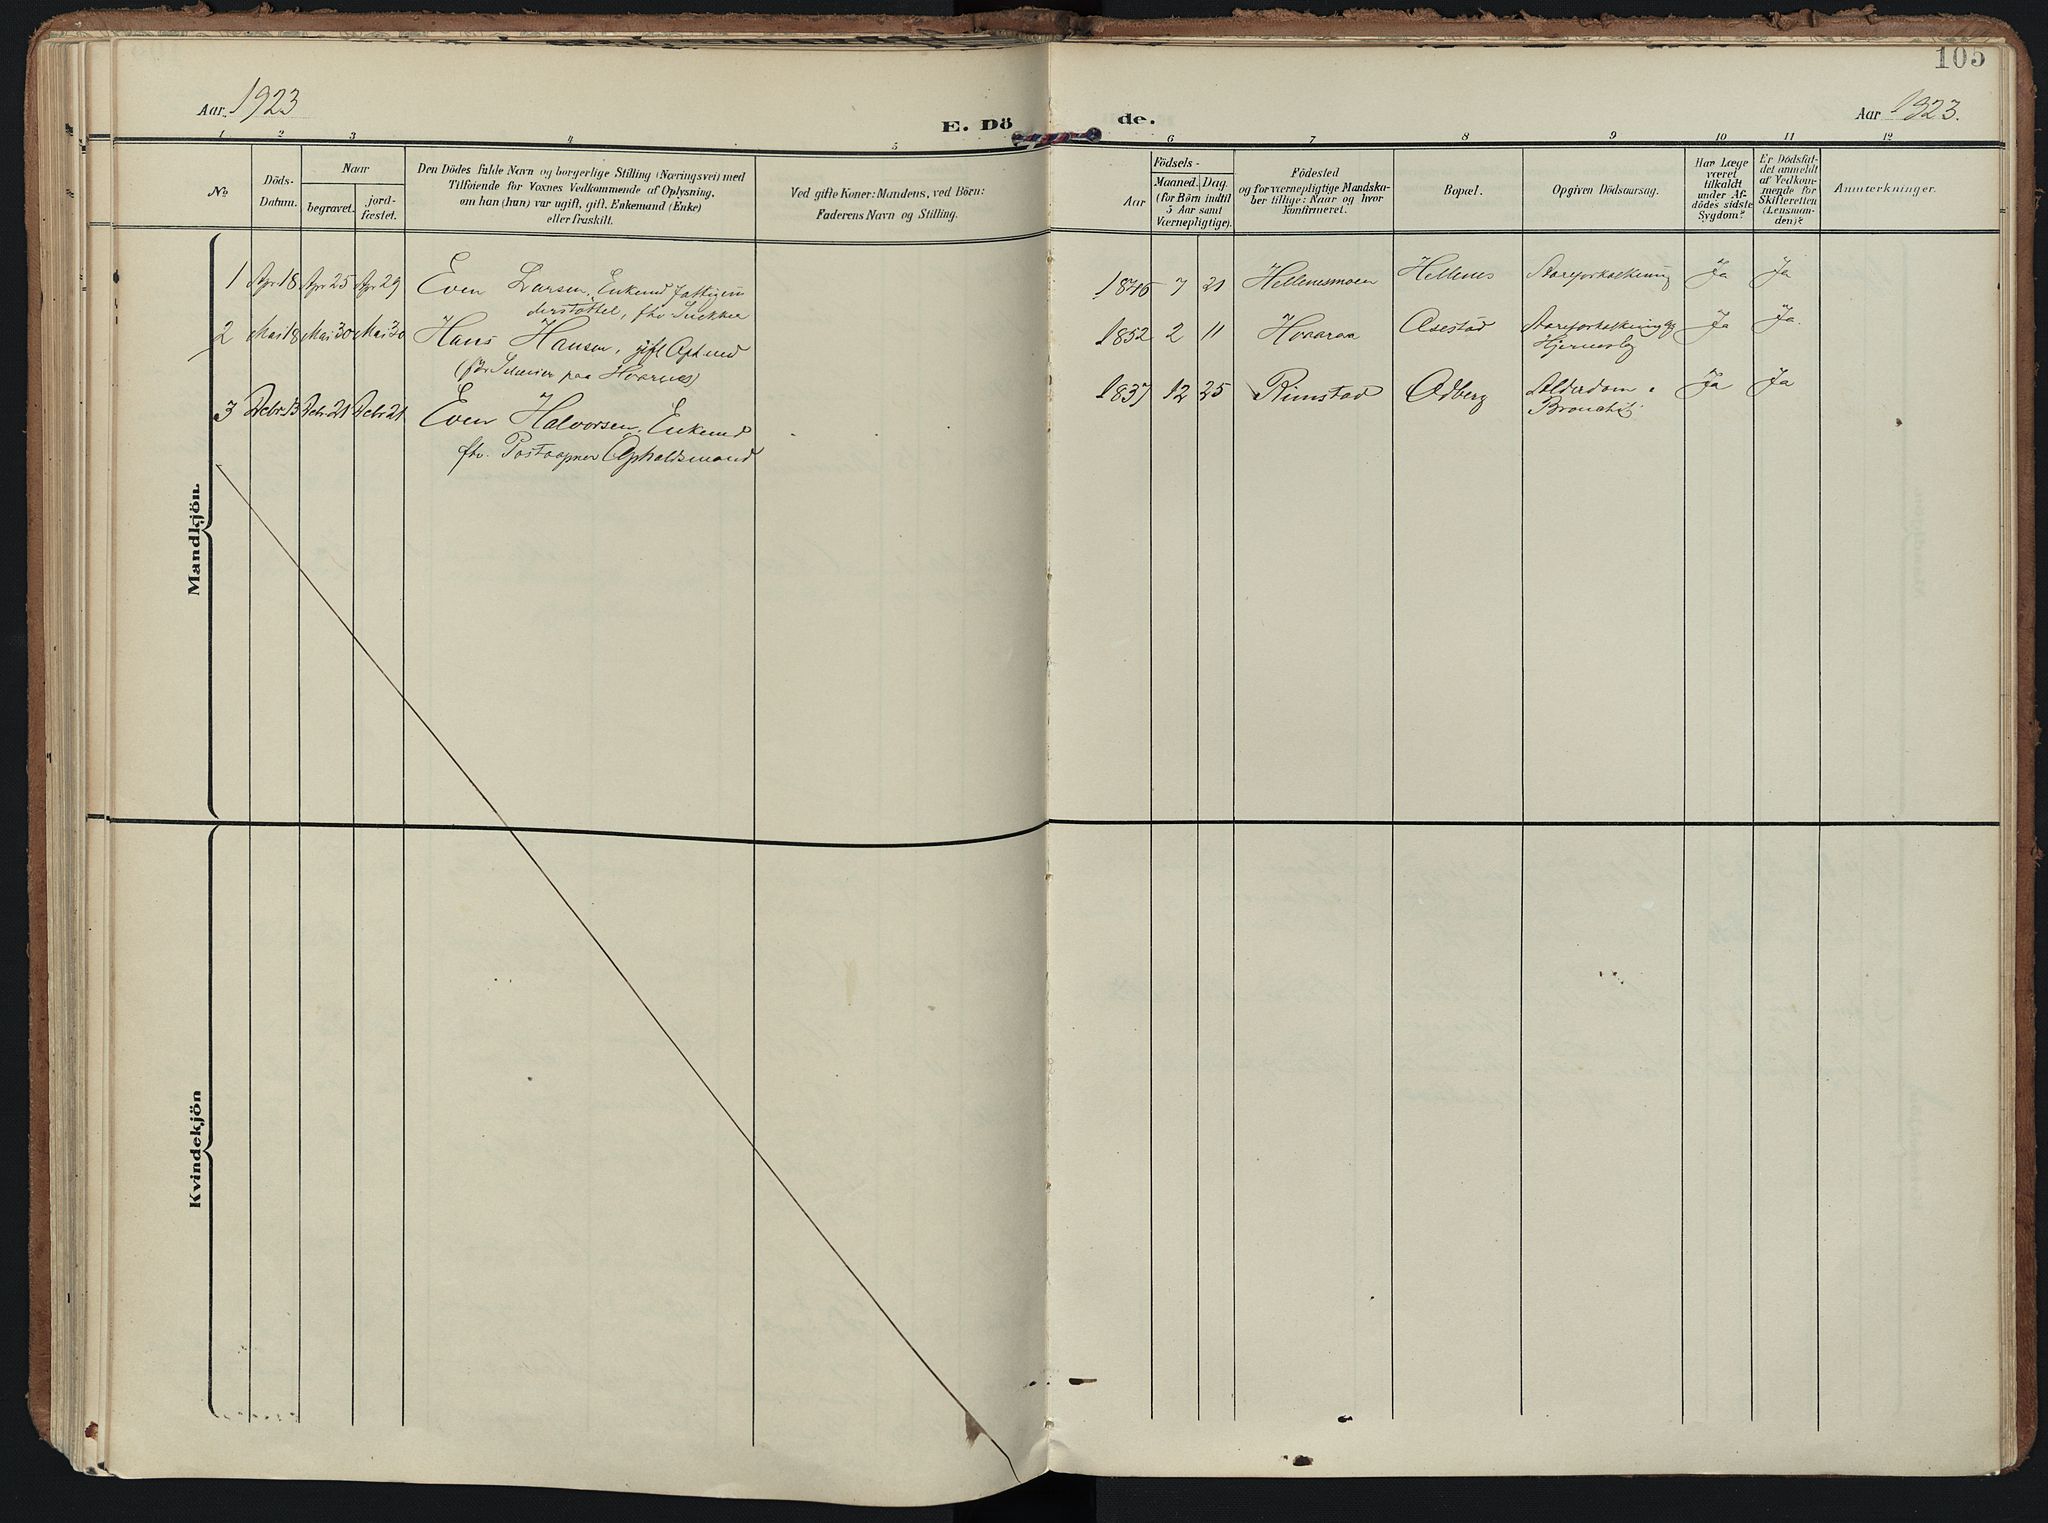 105
Aar 1923
E. Dö
de.
Aar 1923.
1 2 3 4 5 6 7 8 9 10 11 12
No
Döds-
Datum.
Naar
begravet.
jord-
fæstet.
Den Dödes fulde Navn og borgerlige Stilling (Næringsvei) med
Tilföiende for Voxnes Vedkommende af Oplysning,
om han (hun) var ugift, gift, Enkemand (Enke)
eller fraskilt.
Ved gifte Koner: Mandens, ved Börn:
Faderens Navn og Stilling.
Födsels-
Aar
Maaned.
Dag.
(for Börn indtil
5 Aar samt
Værnepligtige).
Födested
og for værnepligtige Mandska-
ber tillige: Naar og hvor
konfirmeret.
Bopæl.
Opgiven Dödsaarsag.
Har Læge
været
tilkaldt
under Af-
dödes sidste
Sygdom?
Er Dödsfal-
det anmeldt
af Vedkom-
mende for
Skifteretten
(Lensman-
den)?
Anmærkninger.
Mandkjön.
1 Apr 18 Apr 25 Apr 29 Even Larsen, Enkemd fattigun
derstöttet, fhv.
18 7 21 Hellenesmoen Hellenes Aareforkalkning Ja Ja
2 Mai 18 Mai 30 Mai 30 Hans Hansen, gift
paa
1852 2 11 Aareforkalkning og Ja Ja.
3 Debr 13 Debr 21 Debr 21 Even Halvorsen, Enkemd
fhv. Postaapner Opholdsmand
1837 12 25 Rimstad Odberg Alderdom Ja Ja
Kvindekjön